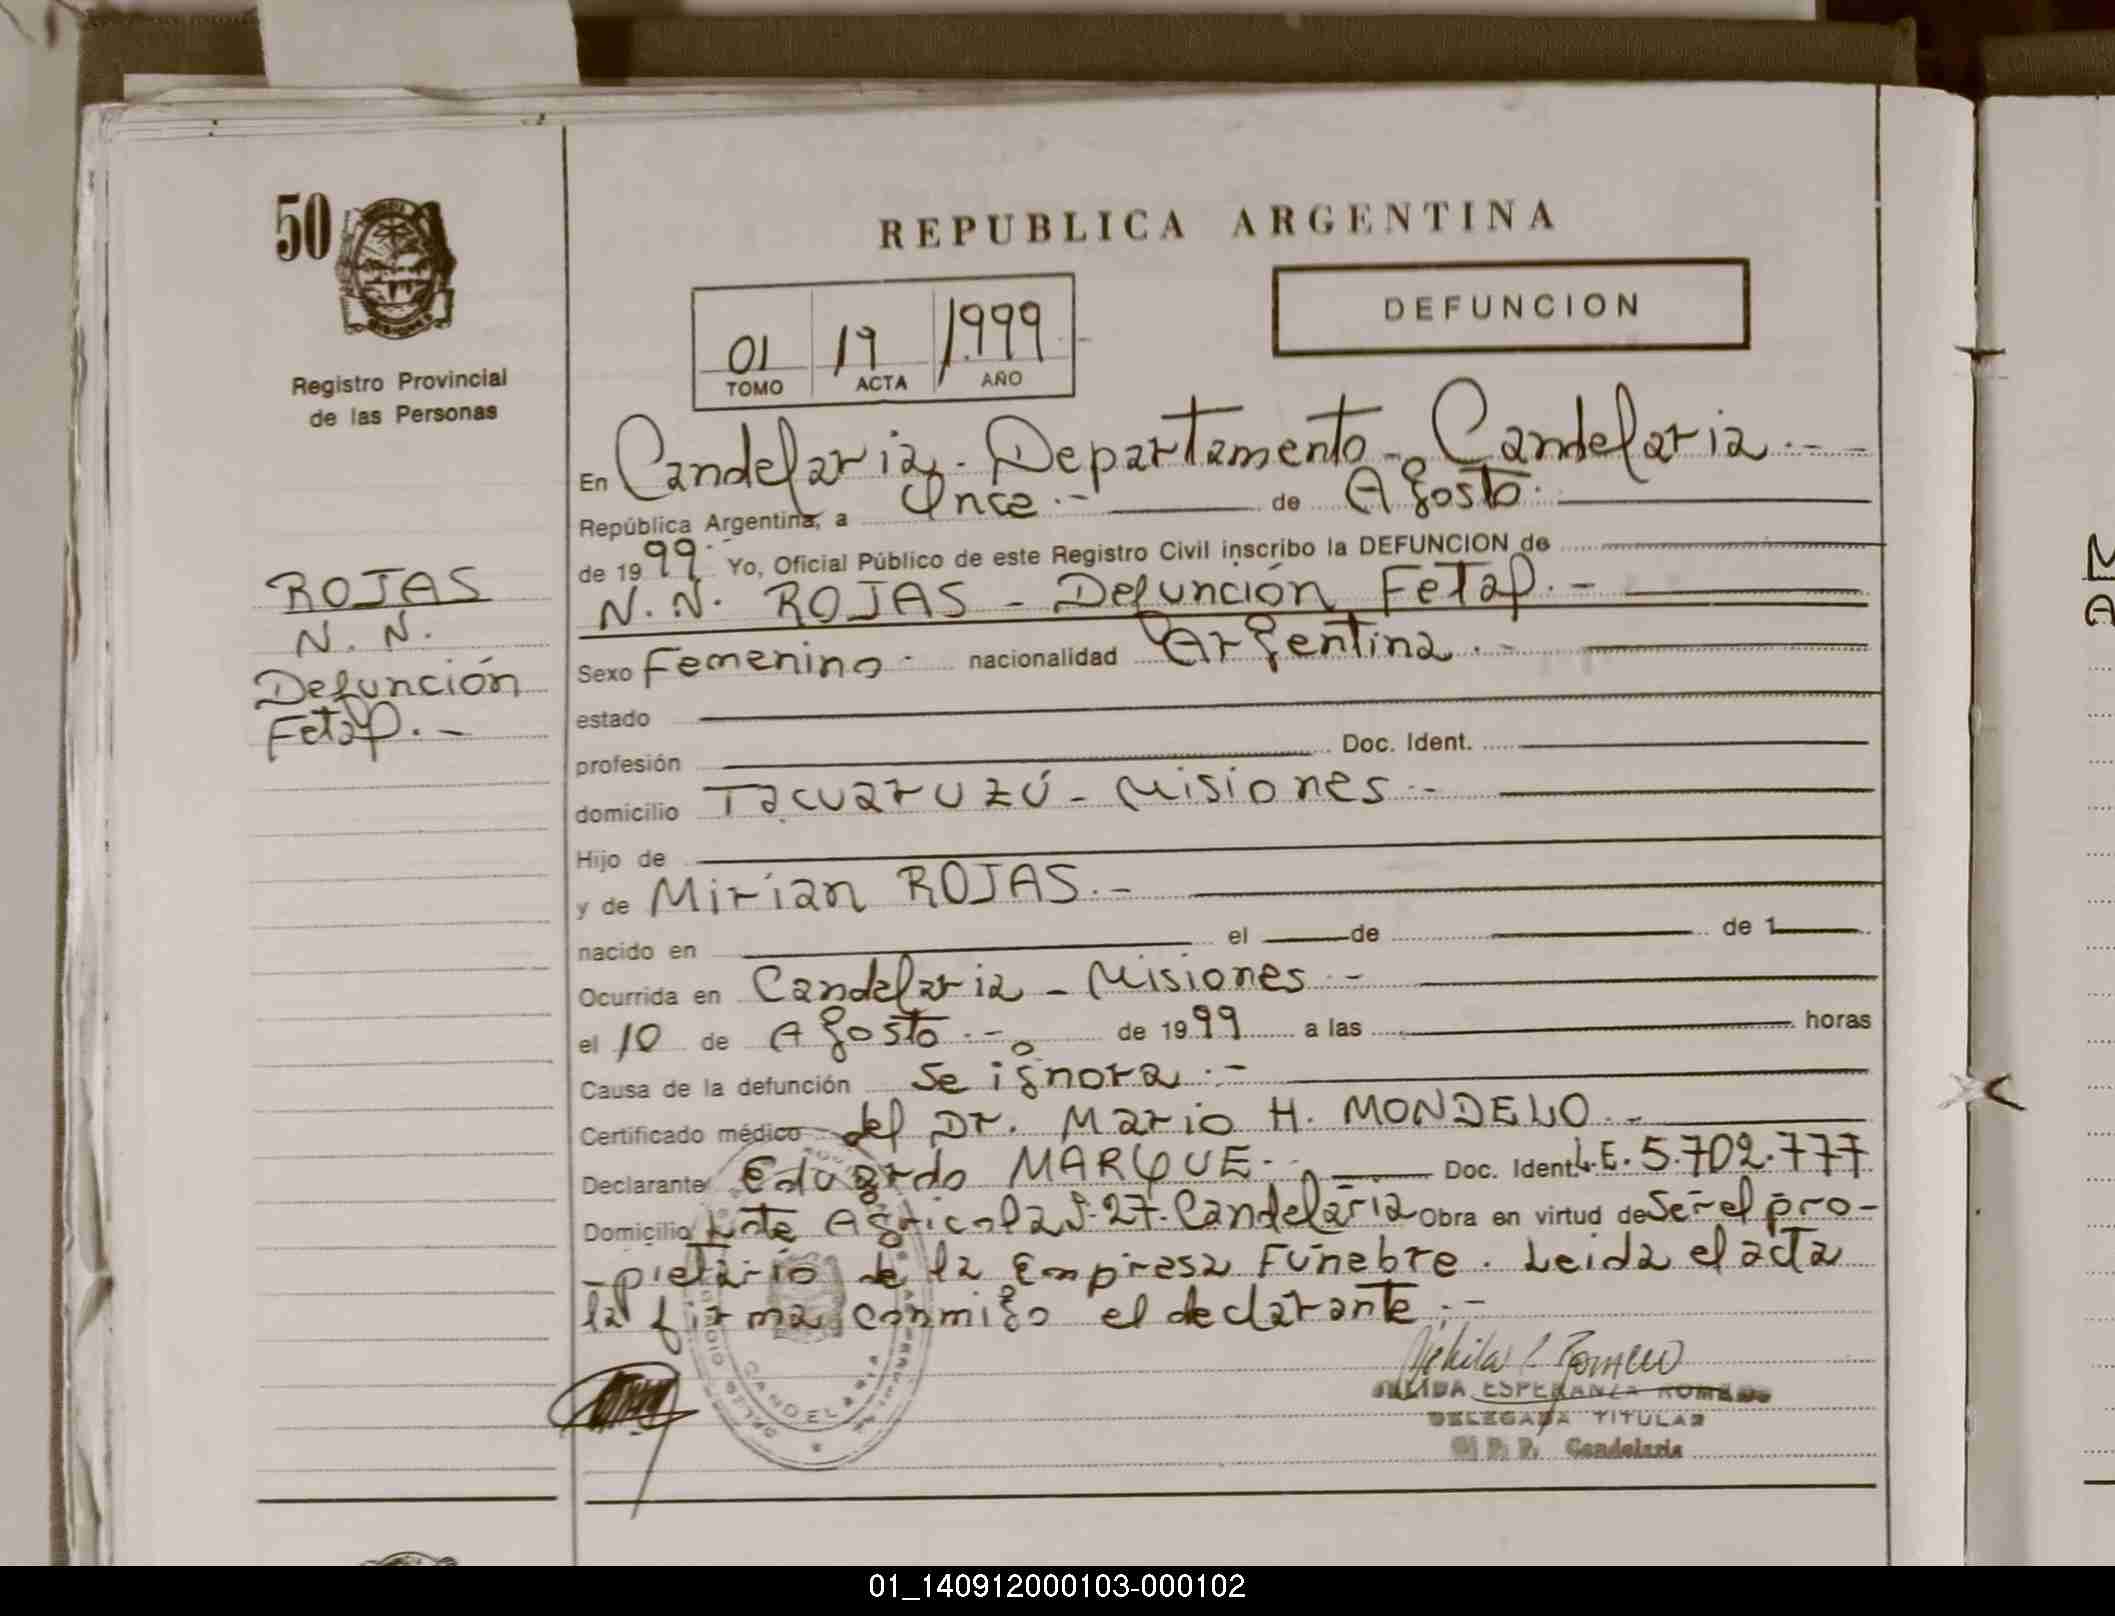 50
Registro Provincial
de las Personas
ROJAS
N. N.
Defunción
Fetal.-
REPUBLICA ARGENTINA
01 19 1999
TOMO ACTA AÑO
DEFUNCION
En Candelaria - Departamento - Candelaria.-
República Argentina, a Once.- de Agosto.
de 1999.- Yo, Oficial Público de este Registro Civil inscribo la DEFUNCION de
N.N. ROJAS - Defunción Fetal.-
Sexo Femenino. nacionalidad Argentina.-
estado
profesión Doc. Ident.
domicilio Tacuaruzú - Misiones.-
Hijo de
y de Mirian ROJAS.-
nacido en el de de 1
Ocurrida en Candelaria - Misiones.-
el 10 de Agosto.- de 1999 a las horas
Causa de la defunción Se ignora.-
Certificado médico del Dr. Mario H. MONDELO.-
Declarante Eduardo MARQUE.- Doc. Ident. L.E. 5.702.777
Domicilio Lote Agricola 27. Candelaria Obra en virtud de Ser el pro-
-pietario de la Empresa Fúnebre. Leida el acta
la firma conmigo el declarante.-
CANDELARIA
ESPERANZA ROMERO
DELEGADA TITULAR
Candelaria
M
A
01_140912000103-000102